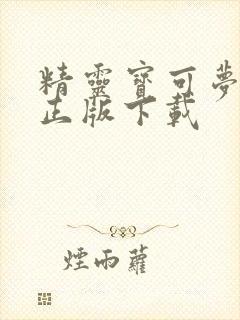 精靈寶可夢
正版下載
煙雨蘿